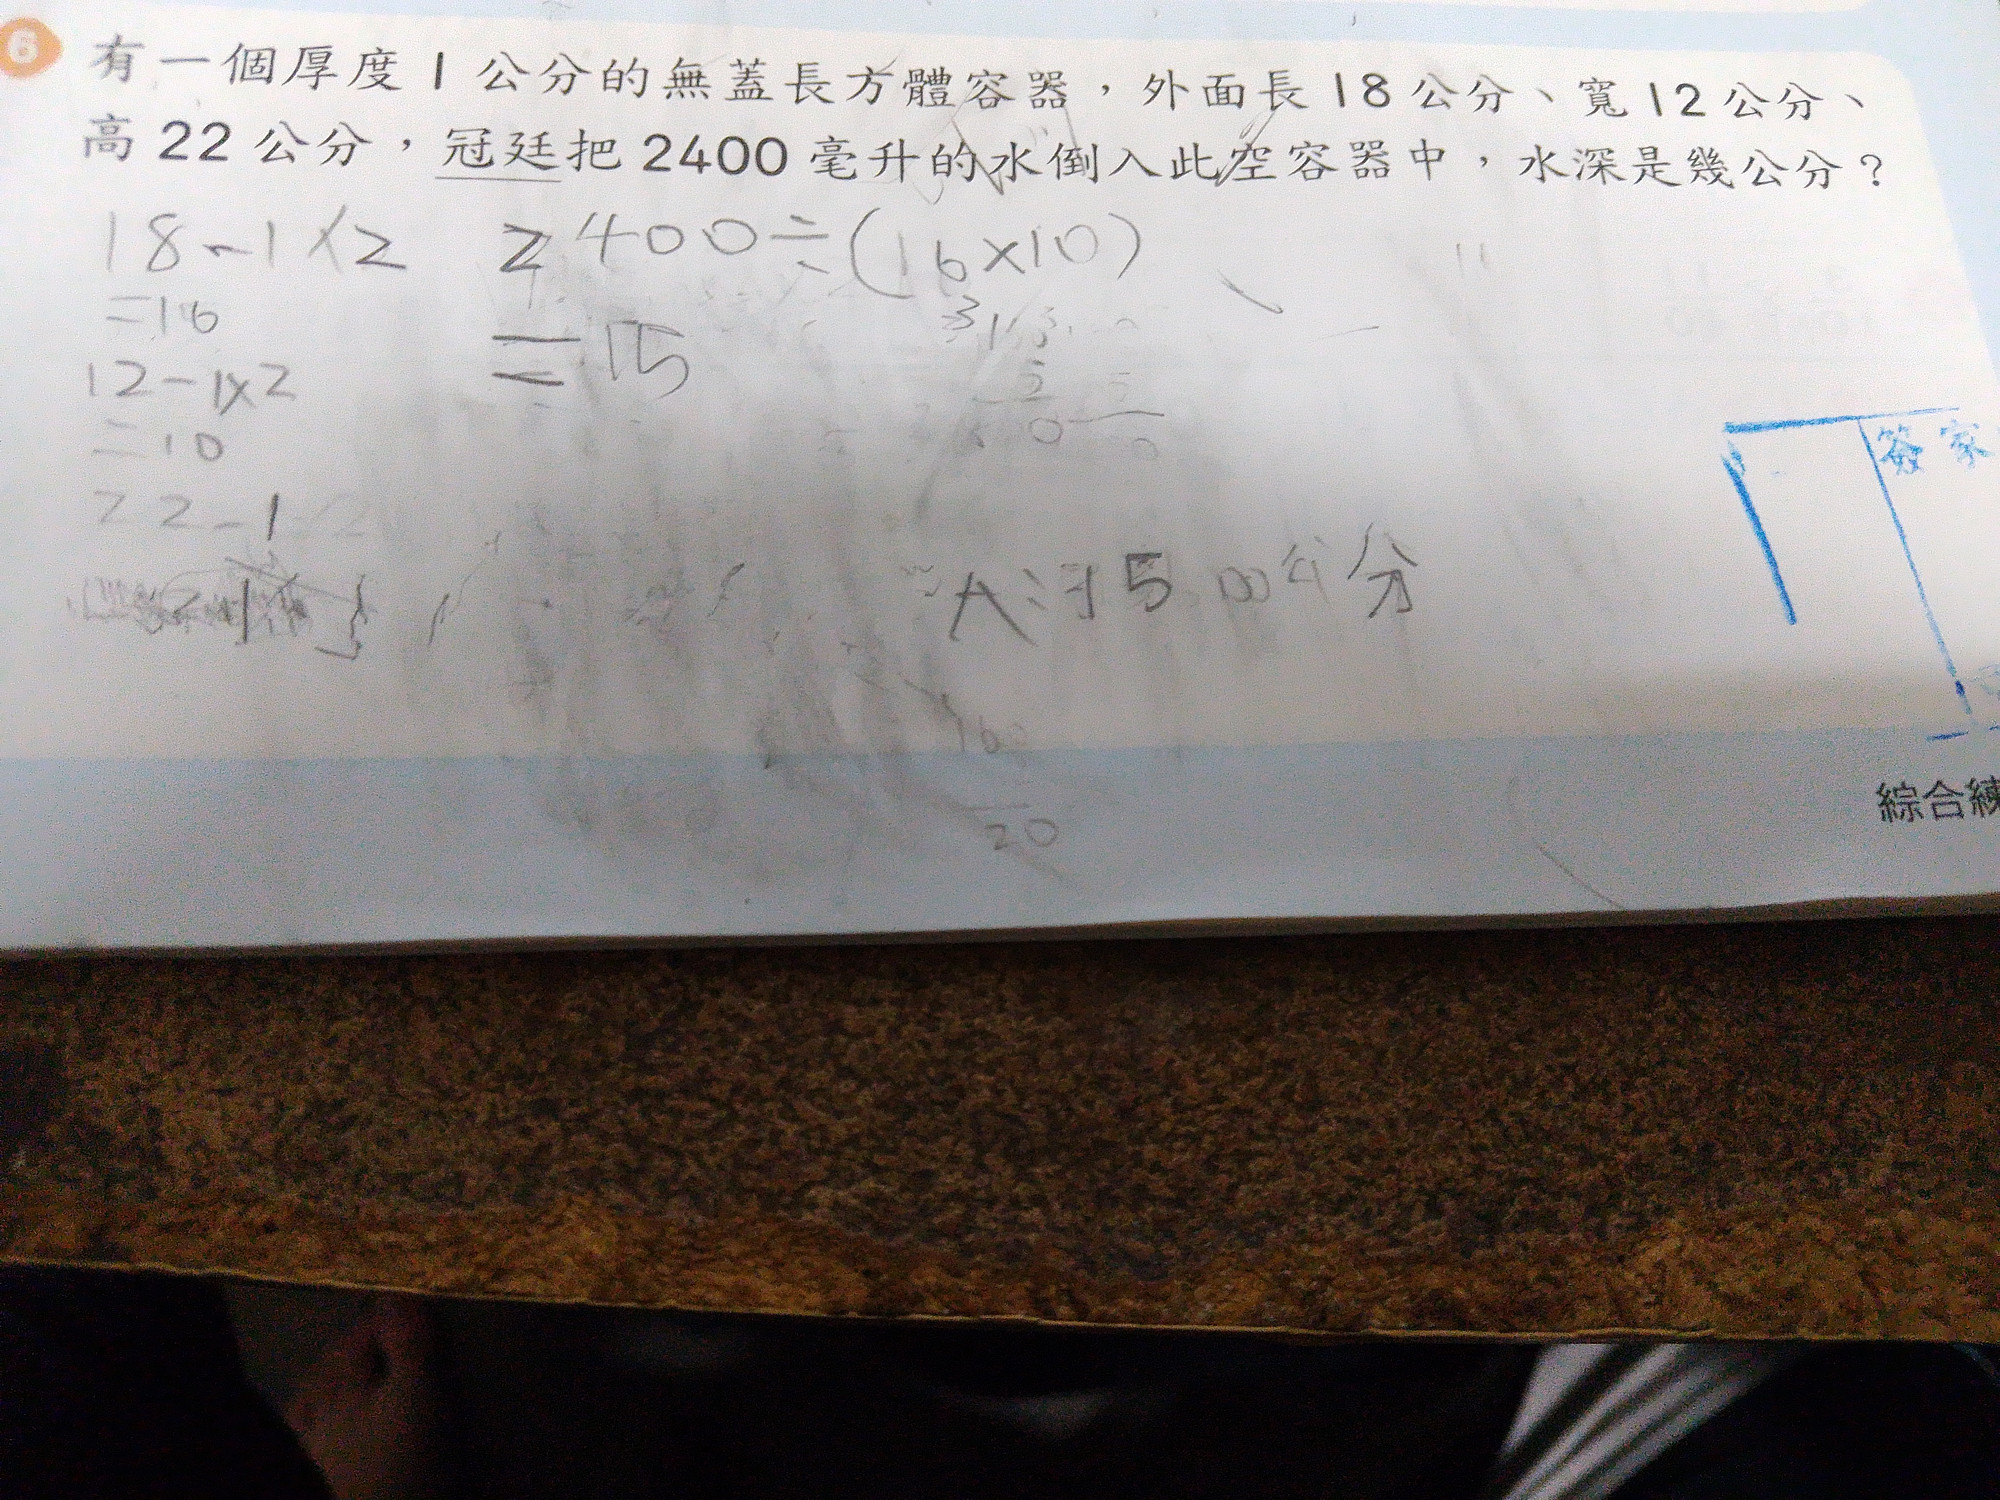 6 有一個厚度1公分的無蓋長方體容器，外面長18公分、寬12公分、
高22公分，冠廷把2400毫升的水倒入此空容器中，水深是幾公分？
18-1×2
=16
12-1×2
=10
22-1
2400÷(16×10)
=15
A:15公分
160
20
簽家
綜合練